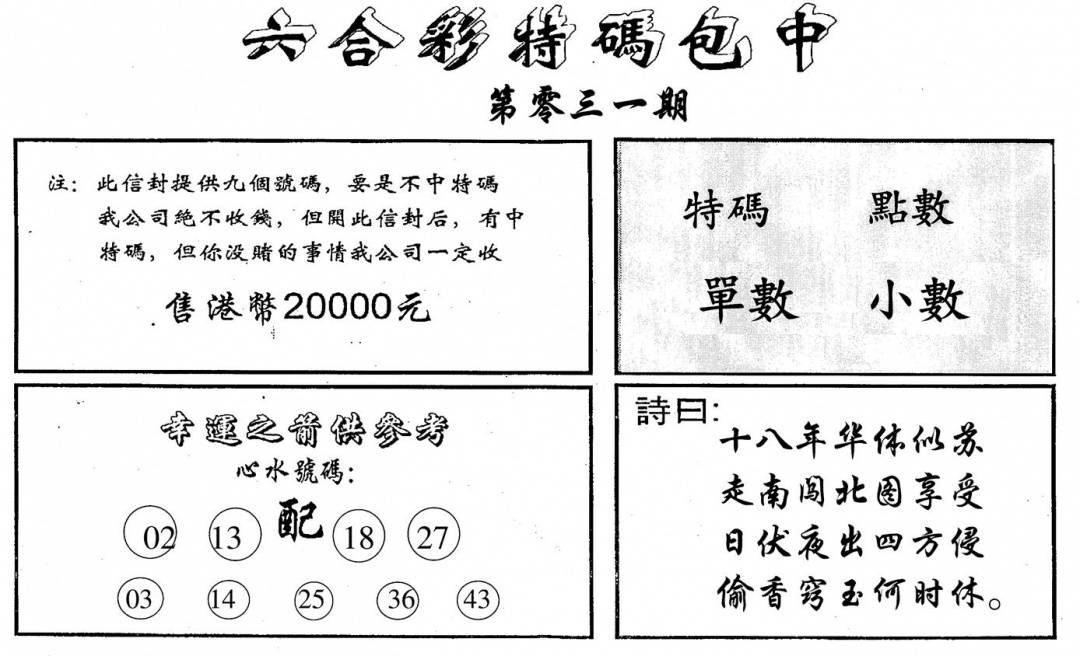 六合彩特碼包中
第零三一期
注：此信封提供九個號碼，要是不中特碼
我公司絕不收錢，但開此信封后，有中
特碼，但你没賭的事情我公司一定收
售港幣20000元
特碼 點數
單數 小數
幸運之箭供參考
心水號碼：
02 13 配 18 27
03 14 25 36 43
詩曰：
十八年华体似苏
走南闯北图享受
日伏夜出四方侵
偷香窍玉何时休。